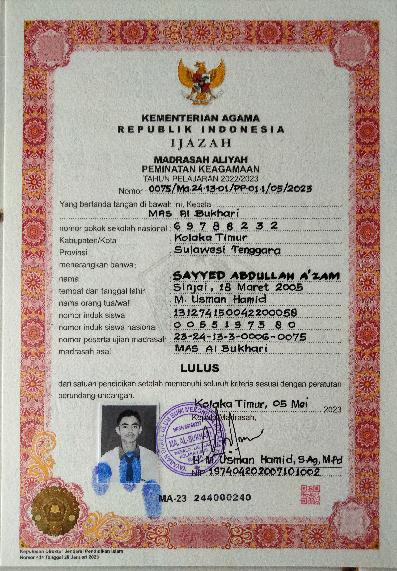 KEMENTERIAN AGAMA
REPUBLIK INDONESIA
IJAZAH
MADRASAH ALIYAH
PEMINATAN KEAGAMAAN
TAHUN PELAJARAN 2022/2023
Nomor 0075/Ma.24-13-01/PP-01.1/05/2023
Yang bertanda tangan di bawah ini, Kepala
MAS Al Bukhari
nomor pokok sekolah nasional 69788232
Kabupaten/Kota Kolaka Timur
Provinsi Sulawesi Tenggara
menerangkan bahwa:
nama SAYYED ABDULLAH A'ZAM
tempat dan tanggal lahir Sinjai, 18 Maret 2005
nama orang tua/wali M. Usman Hamid
nomor induk siswa 131274150042200058
nomor induk siswa nasional 0055197380
nomor peserta ujian madrasah 23-24-13-3-0006-0075
madrasah asal MAS Al Bukhari
LULUS
dari satuan pendidikan setelah memenuhi seluruh kriteria sesuai dengan peraturan
perundang-undangan.
Kolaka Timur, 05 Mei 2023
Kepala Madrasah,
H. M. Usman Hamid, S.Ag, M.Pd
NIP 197404202007101002
MA-23 244000240
Keputusan Direktur Jenderal Pendidikan Islam